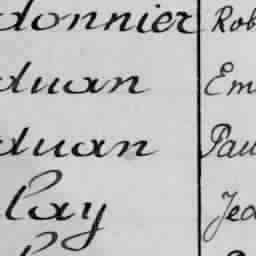 donnier Rob
duan Em
duan Pau
lay Jea